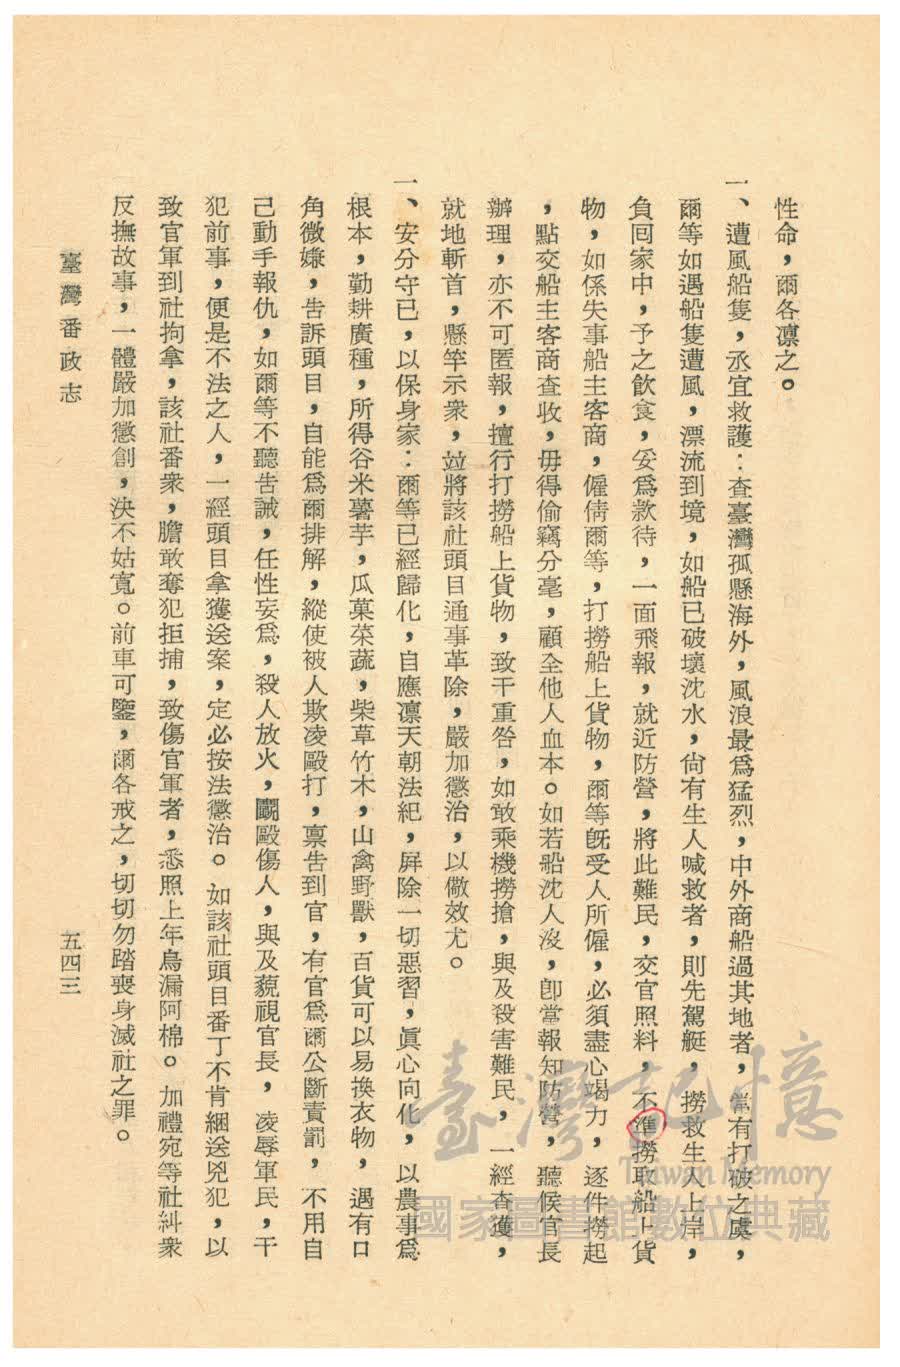 性命，爾各凛之。
一、遭風船隻，丞宜救護：查臺灣孤懸海外，風浪最爲猛烈，中外商船過其地者，常有打破之虞，
爾等如遇船隻遭風，漂流到境，如船已破壞沈水，尙有生人喊救者，則先駕艇，撈救生人上岸，
負囘家中，予之飮食，妥爲款待，一面飛報，就近防營，將此難民，交官照料，不準撈取船上貨
物，如係失事船主客商，僱倩爾等，打撈船上貨物，爾等旣受人所僱，必須盡心竭力，逐件撈起
，點交船主客商查收，毋得偷竊分毫，顧全他人血本。如若船沈人沒，卽當報知防營，聽候官長
辦理，亦不可匿報，擅行打撈船上貨物，致干重咎，如敢乘機撈搶，與及殺害難民，一經查獲，
就地斬首，懸竿示衆，竝將該社頭目通事革除，嚴加懲治，以儆效尤。
一、安分守已，以保身家：爾等已經歸化，自應凛天朝法紀，屏除一切惡習，眞心向化，以農事爲
根本，勤耕廣種，所得谷米薯芋，瓜菓菜蔬，柴草竹木，山禽野獸，百貨可以易換衣物，遇有口
角微嫌，告訴頭目，自能爲爾排解，縱使被人欺凌毆打，禀告到官，有官爲爾公斷責罰，不用自
己動手報仇，如爾等不聽告誡，任性妄爲，殺人放火，鬭毆傷人，與及藐視官長，凌辱軍民，干
犯前事，便是不法之人，一經頭目拿獲送案，定必按法懲治。如該社頭目番丁不肯綑送兇犯，以
致官軍到社拘拿，該社番衆，膽敢奪犯拒捕，致傷官軍者，悉照上年烏漏阿棉。加禮宛等社糾衆
反撫故事，一體嚴加懲創，決不姑寬。前車可鑒，爾各戒之，切切勿踏喪身滅社之罪。
臺灣番政志
五四三
臺灣記憶
Taiwan Memory
國家圖書館數位典藏